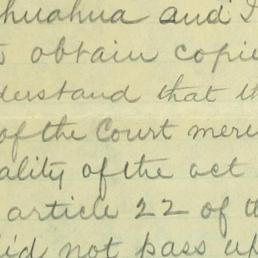 huahua and I
obtain copie
derstand that th
of the Court mere
ality of the act
article 22 of th
did not pass up